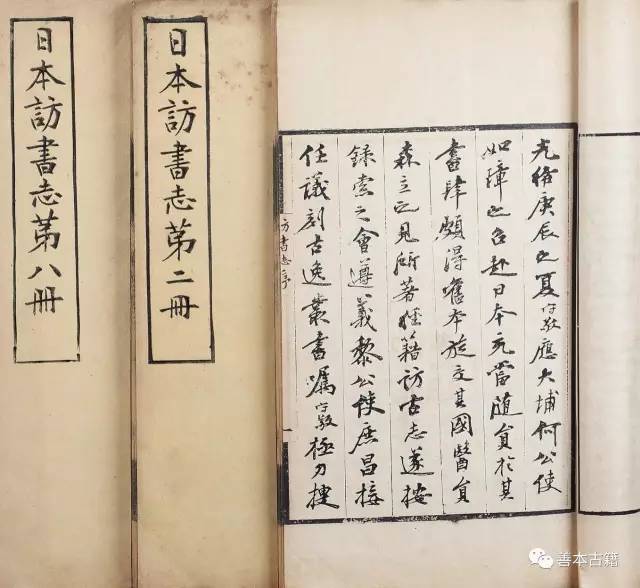 光緒庚辰之夏守敬應大埔何公使
如璋之召赴日本充當隨員於其
書肆頗得舊本旋交其國醫員
森立之見所著經籍訪古志遂按
録索之會遵義黎公使庶昌接
任議刻古逸叢書囑守敬極力搜
訪書志序
日本訪書志第二冊
日本訪書志第八冊
善本古籍